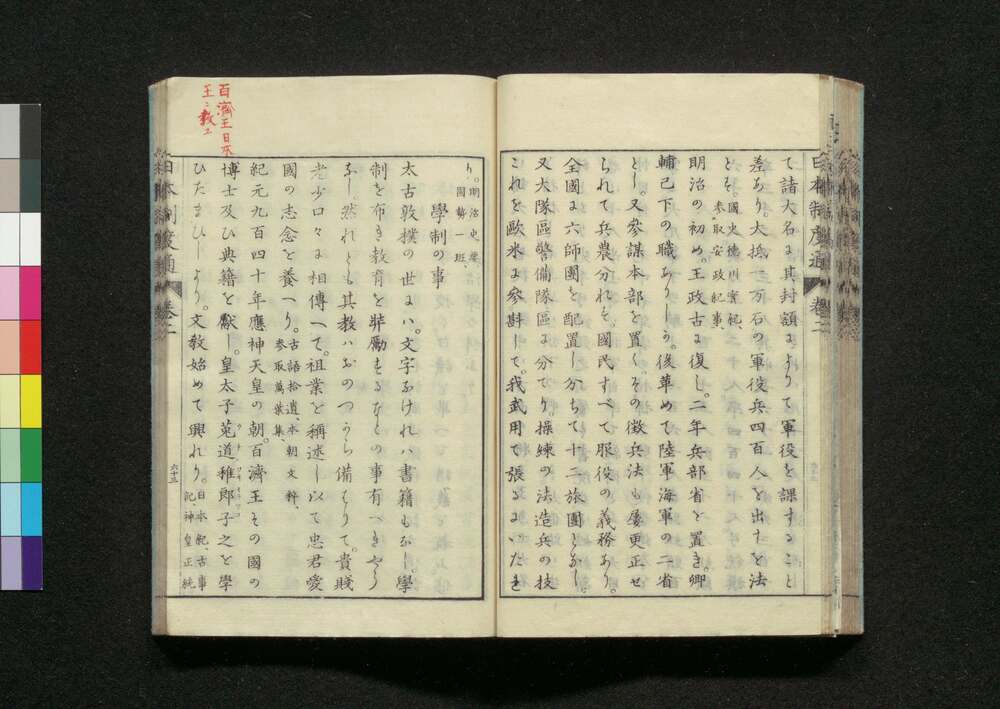 て諸大名は其封額によりて軍役を課することと
差あり。大抵一万石の軍役兵四百人を出すを法
とそ。國史、德川實紀、
参-取安政紀事、
明治の初め。王政古に復し。二年兵部省を置き。卿
輔已下の職あり
後革めて陸軍海軍の二省
とし。又參謀本部を置く。その徴兵法も屡更正せ
られて兵農分れを。國民すべて服役の義務あり。
全國に六師團を配置し分ちて十二旅團となし。
又大隊區警備隊區に分てり。操練の法造兵の技
これを歐米に參斟して。我武用て張るにいたれ
日本制度通
卷二
り。明治史
國勢一班、
學制の事
太古敦撲の世は。文字なけれハ書籍もなし。學
制を布き敎育を奬勵するなとの事有へきやう
なし。然れとも其教ハおのつから備はりて。貴賤
老少口々に相傳へて。祖業を稱述し以て忠君愛
國の志念を養へり。古語拾遺、本朝文粹、
参-取萬葉集、
紀元九百四十年應神天皇の朝。百濟王その國の
博士及ひ典籍を獻し。皇太子菟道稚郎子之を學
ひたまひしより。文敎始めて興れり。日本紀、古事
記、神皇正統
六十五
日本制度通
卷二
百濟王日本
王